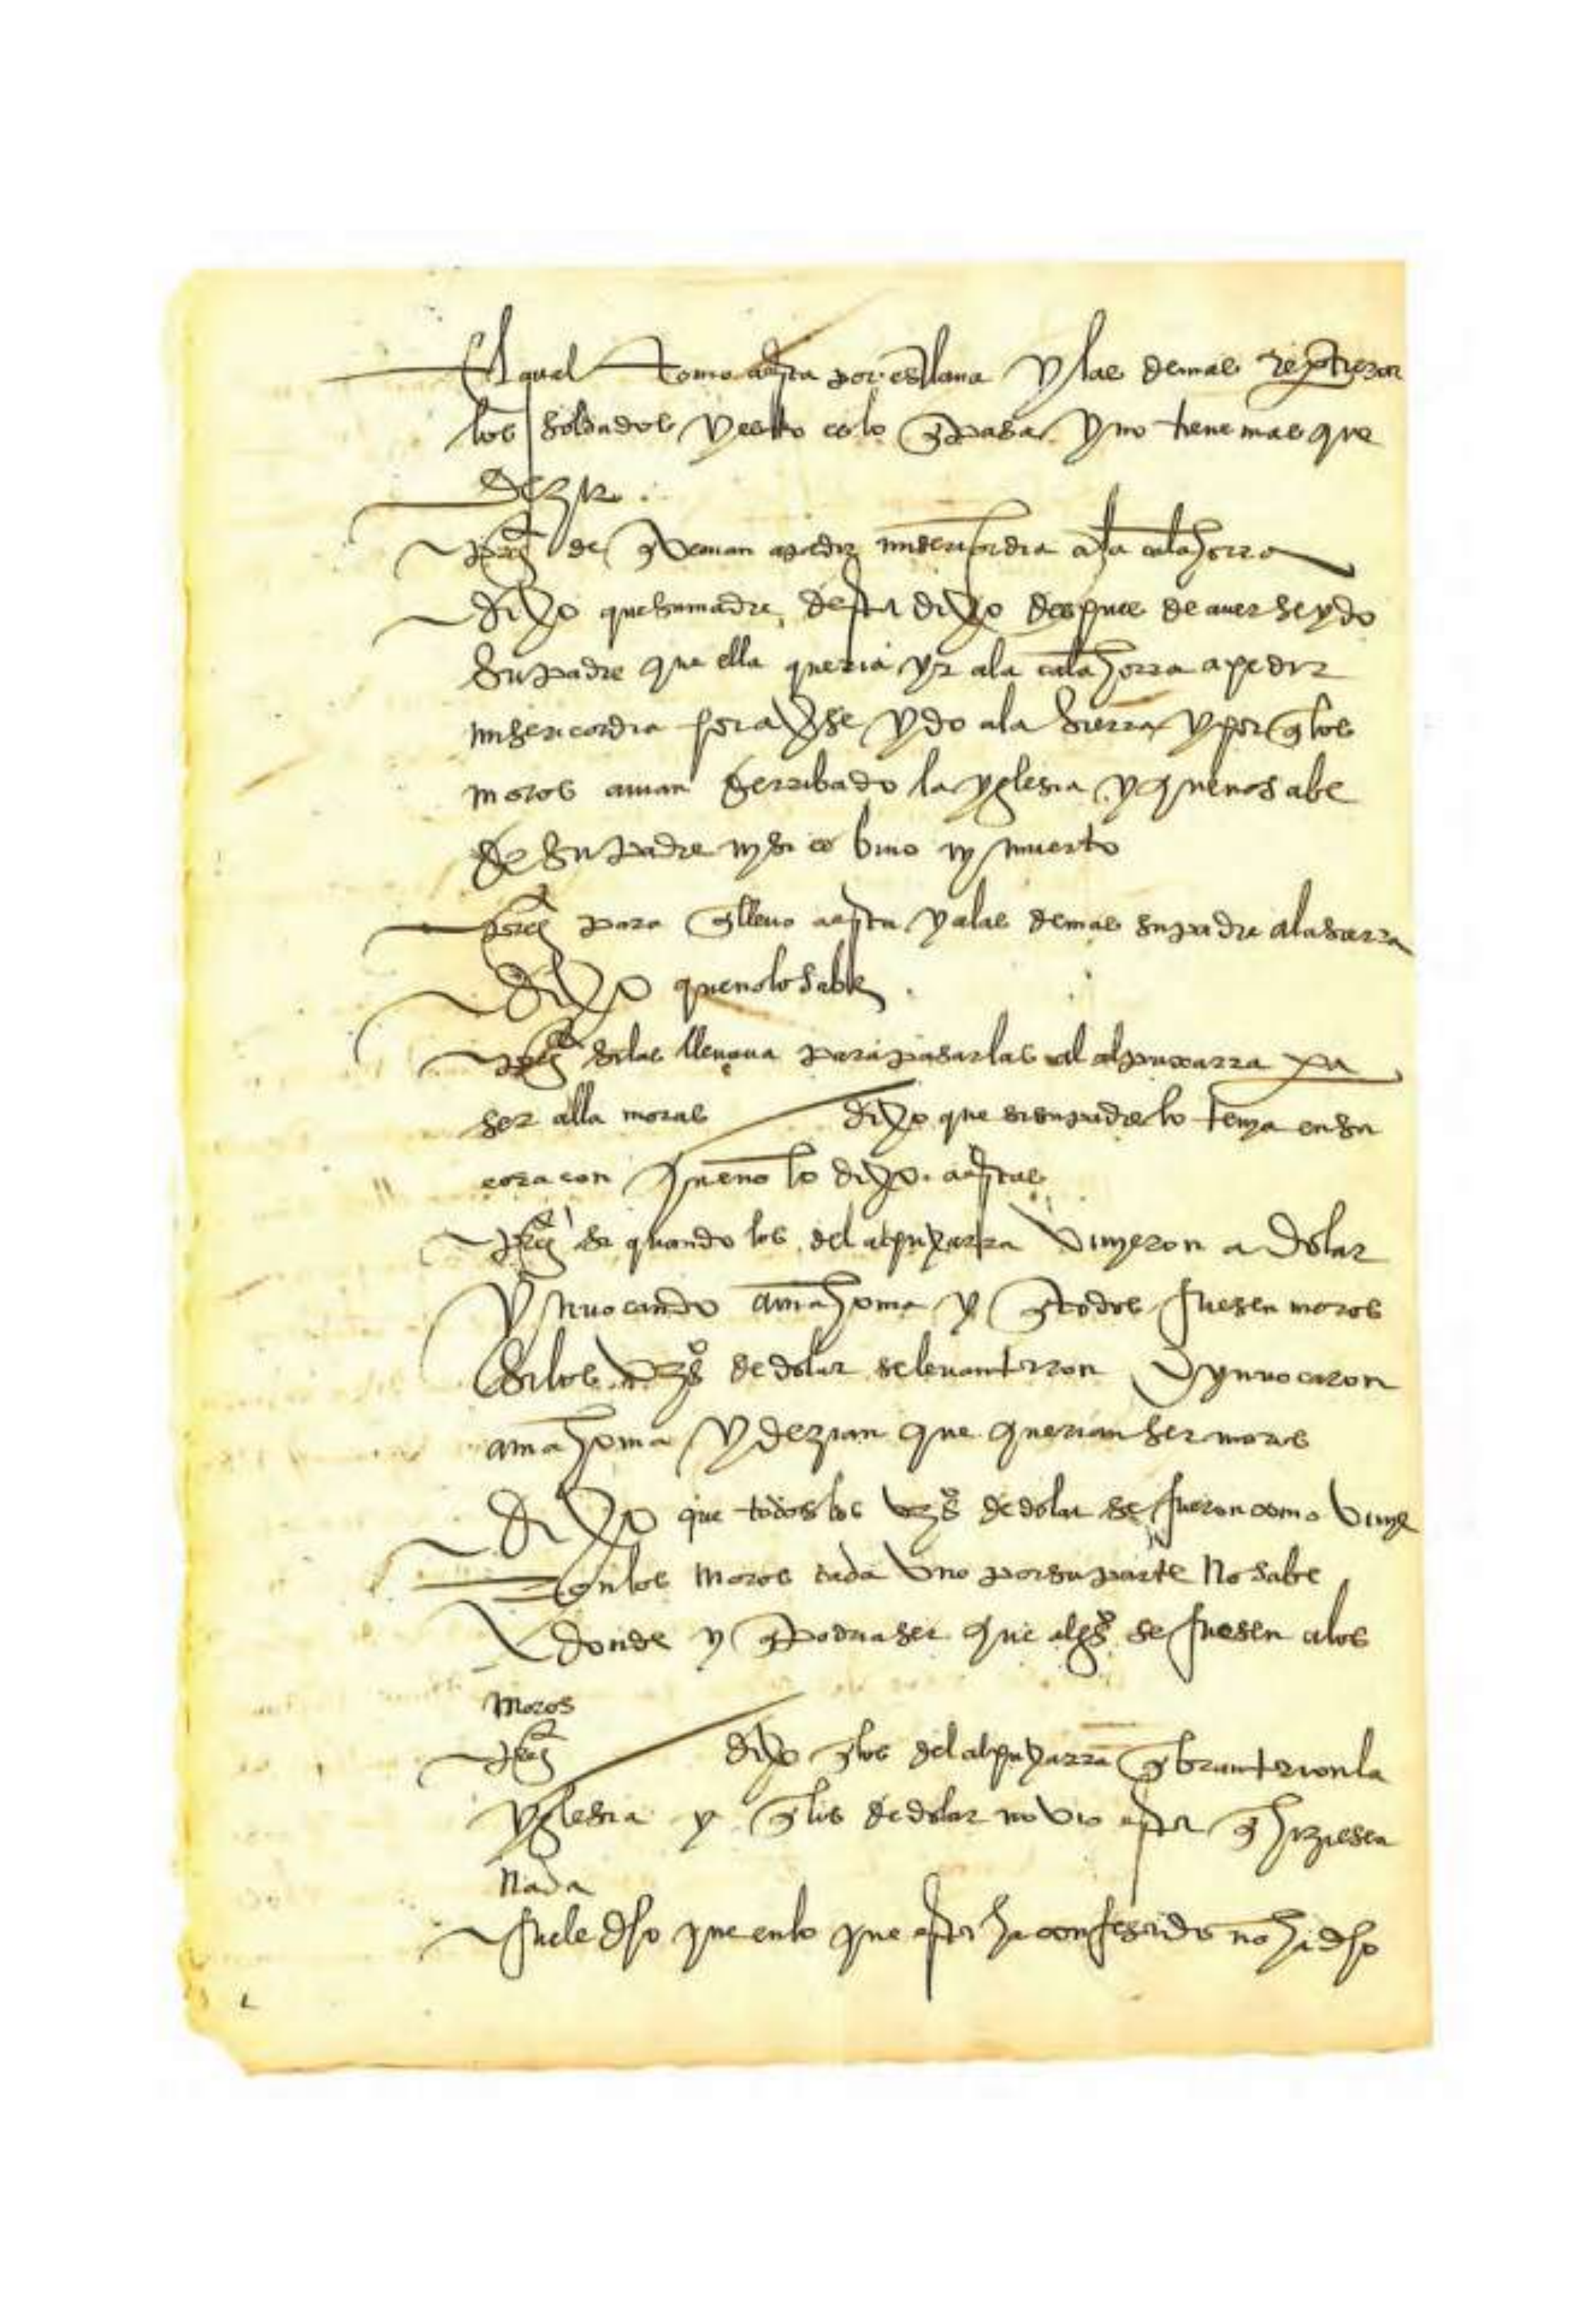 El qual tomo a esta por esclaua y las demas repartieron
los soldados y esto es lo q pasa y no tiene mas que
dezir
preg de q venian a pedir misericordia a la calahorra
dixo que su madre desta dixo despues de auerse ydo
su padre que ella queria yr a la calahorra a pedir
misericordia por averse ydo a la sierra y por q los
moros auian derribado la yglesia y que no sabe
de su padre ny si es bivo ny muerto
preg para q lleuo a esta y a las demas su padre a la sierra
dixo que no lo sabe
preg si las lleuaua para pasarlas al alpuxarra pa
ser alla moras dixo que si su padre lo tenya en su
coraçon que no lo dixo a estas
preg si quando los del alpuxarra vinyeron a dolar
ynuocando a mahoma y q todos fuesen moros
si los vezos de dolar se leuantaron y ynuocaron
a mahoma y dezian que querian ser moros
dixo que todos los vezos de dolar se fueron como vinye
ron los moros cada vno por su parte no sabe
donde y q podria ser que algos se fuesen a los
moros
preg dixo q los del alpuxarra qbrantaron la
yglesia y q los de dolar no vio esta q hiziesen
nada
fuele dho que en lo que esta ha confesado no ha dho